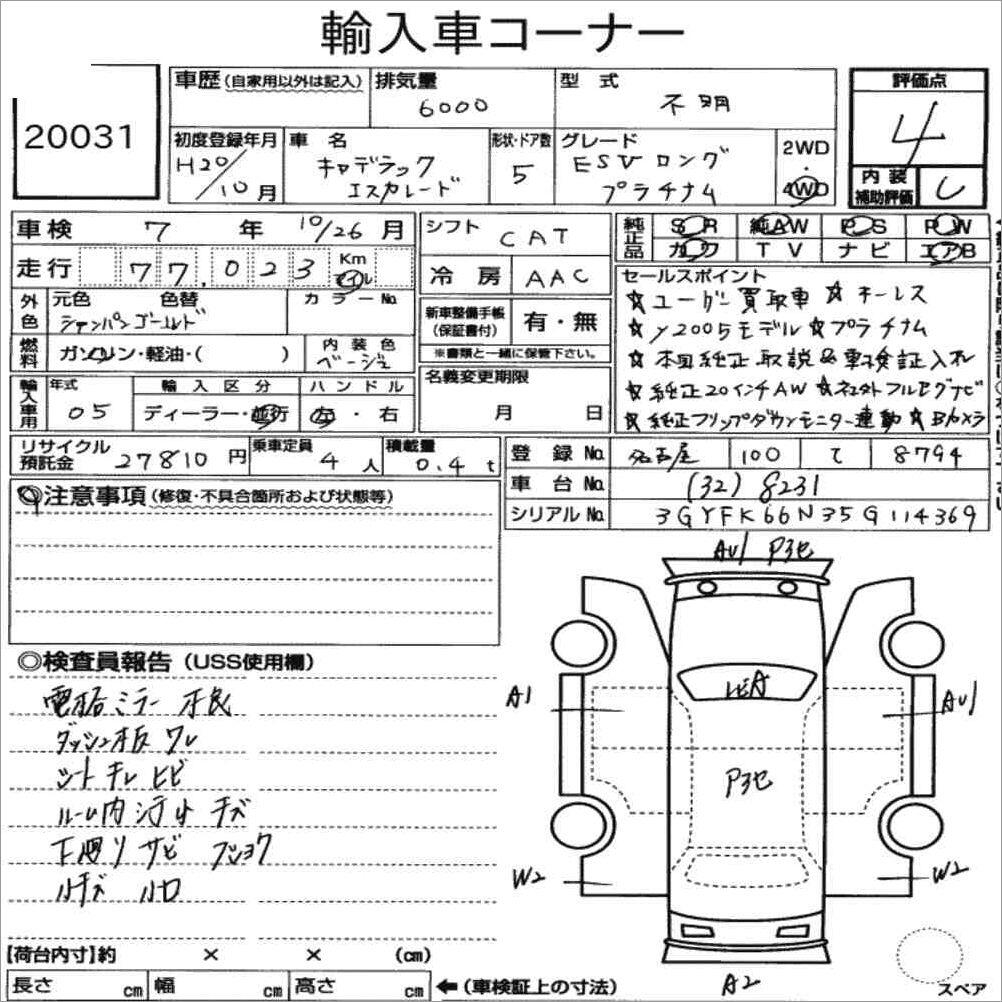 輸入車コーナー
20031
車歴(自家用以外は記入) 排気量 6000
型式 不明
評価点 4
初度登録年月 H20/10月
車名 キャデラック エスカレード
形状・ドア数 5
グレード ESV ロング プラチナム
2WD・4WD
内装補助評価 C
車検 7年 10/26月
シフト CAT
純正品 SR 純AW PS PW
カワ TV ナビ エアB
走行 77,023 Km マイル
冷房 AAC
外色 元色 色替 シャンパンゴールド
カラーNo.
新車整備手帳(保証書付) 有・無
※書類と一緒に保管下さい。
燃料 ガソリン・軽油・( )
内装色 ベージュ
名義変更期限 月 日
輸入車用 年式 05
輸入区分 ディーラー・並行
ハンドル 左・右
セールスポイント
☆ユーザー買取車 ☆キーレス
☆Y2005モデル ☆プラチナム
☆本国純正取説&車検証入れ
☆純正20インチAW ☆社外フルセグナビ
☆純正フリップダウンモニター連動 ☆Bカメラ
リサイクル預託金 27810円
乗車定員 4人
積載量 0.4t
登録No. 名古屋 100 て 8794
車台No. (32)8231
シリアルNo. 3GYFK66N35G114369
◎注意事項(修復・不具合箇所および状態等)
◎検査員報告(USS使用欄)
電格ミラー不良
ダッシュ板ワレ
シートキレヒビ
ルーム内汚レキズ
下廻リサビフショク
小キズ 小凹
AU1 P3セ
A1
AU1
P3セ
W2
W2
A2
スペア
【荷台内寸】約 × × (cm)
長さ cm 幅 cm 高さ cm ←(車検証上の寸法)